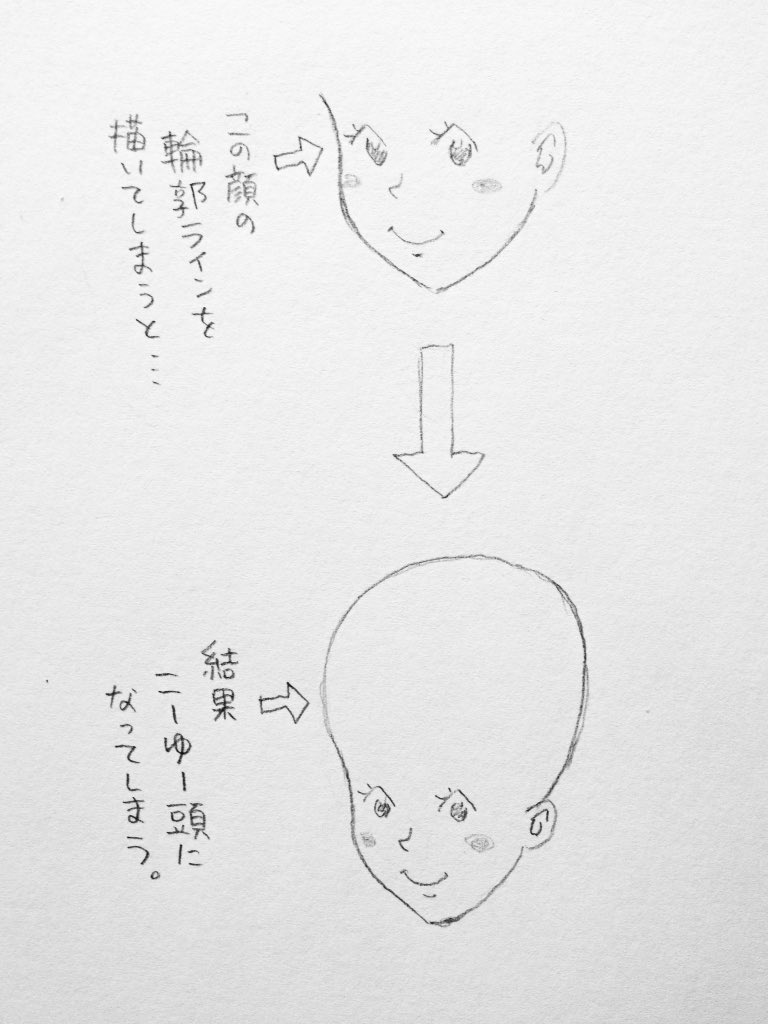 この顔の
輪郭ラインを
描いてしまうと…
結果
こーゆー頭に
なってしまう。